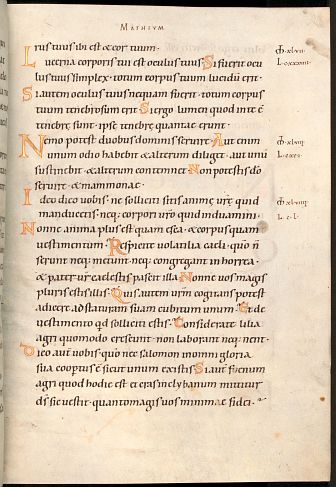 MATHEUM
rus tuus ibi est & cor tuum.
Lucerna corporis tui est oculus tuus. Si fuerit ocu
lus tuus simplex. totum corpus tuum lucidu erit.
Si autem oculus tuus nequam fuerit. totum corpus
tuum tenebrosum erit. Si ergo lumen quod in te e
tenebre sunt. ipse tenebre quantae erunt.
Nemo potest duobus dominis servire. Aut enim
unum odio habebit & alterum diliget. aut unu
sustinebit & alterum contemnet. Non potestis do
servire & mammonae.
Ideo dico vobis. ne solliciti sitis anime vre quid
manducetis. neq; corpori vro quid induamini.
Nonne anima plus est quam esca. & corpus quam
vestimentum. Respicite volatilia caeli. quo n
serunt neq; metunt. neq; congregant in horrea.
& pater vr caelestis pascit illa. Nonne vos magis
pluris estis illis. Quis autem vrm cogitans potest
adicere ad staturam suam cubitum unum. Et de
vestimento qd solliciti estis. Considerate lilia
agri quomodo crescunt. non laborant neq; nent.
Dico aut vobis. quo nec salomon in omni gloria
sua coopertus e sicut unum ex istis. Si aut fenum
agri quod hodie est & cras in clybanum mittitur
ds sic vestit. quanto magis vos minimae fidei.